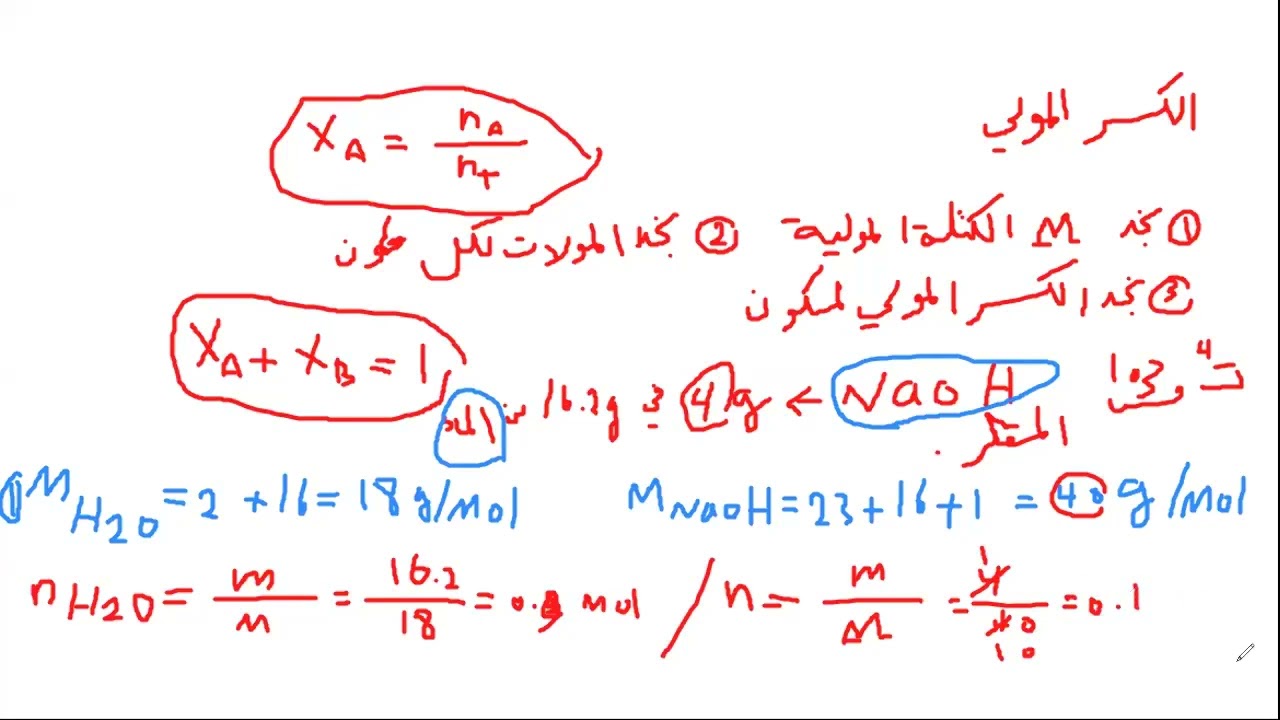 الكسر المولي
X_A = n_A / n_T
① نجد M الكتلة المولية ② نجد المولات لكل مكون
③ نجد الكسر المولي لمكون
X_A + X_B = 1
ت4 ص103 NaOH ← 4g في 16.2g من الماء
المذاب
① M H2O = 2 + 16 = 18 g/mol M NaOH = 23 + 16 + 1 = 40 g/mol
n H2O = m / M = 16.2 / 18 = 0.9 mol / n = m / M = 4 / 40 = 1 / 10 = 0.1